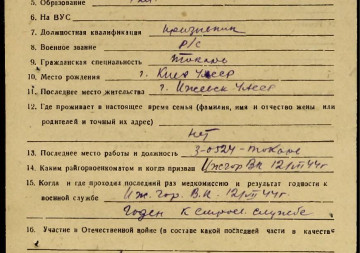 5. Образование
6. На ВУС
7. Должностная квалификация призывник
8. Военное звание р/с
9. Гражданская специальность токарь
10. Место рождения г. Киев УССР
11. Последнее место жительства г. Ижевск УАССР
12. Где проживает в настоящее время семья (фамилия, имя и отчество жены или
родителей и точный их адрес)
нет
13. Последнее место работы и должность 3-0524 - токарь
14. Каким райгорвоенкоматом и когда призван Ижгор ВК 12/VII 44г
15. Когда и где проходил последний раз медкомиссию и результат годности к
военной службе Иж. гор. В.К. 12/VII 44г.
Годен к строев. службе
16. Участие в Отечественной войне (в составе какой последней части в качестве